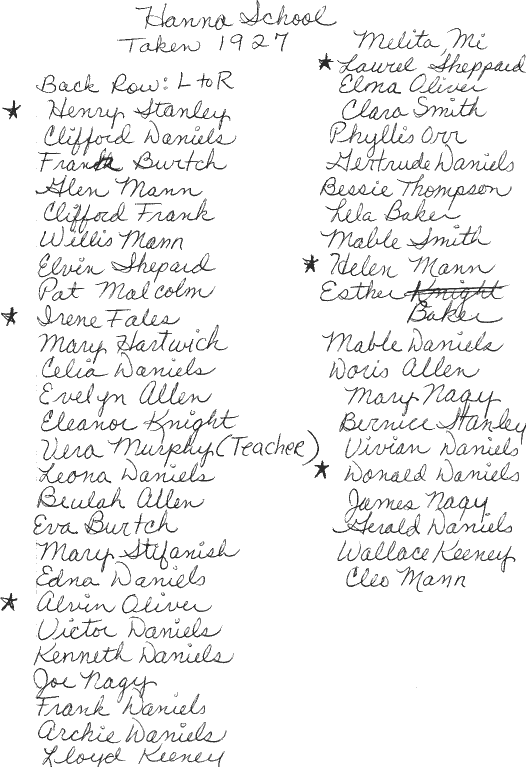 Hanna School
Taken 1927
Back Row: L to R
★ Henry Stanley
Clifford Daniels
Frank Burtch
Glen Mann
Clifford Frank
Willis Mann
Elvin Shepard
Pat Malcolm
★ Irene Fales
Mary Hartwich
Celia Daniels
Evelyn Allen
Eleanor Knight
Vera Murphy (Teacher)
Leona Daniels
Beulah Allen
Eva Burtch
Mary Stifanish
Edna Daniels
★ Alvin Oliver
Victor Daniels
Kenneth Daniels
Joe Nagy
Frank Daniels
Archie Daniels
Lloyd Keeney
Melita, Mi
★ Laurel Sheppard
Elma Oliver
Clara Smith
Phyllis Orr
Gertrude Daniels
Bessie Thompson
Lela Baker
Mable Smith
★ Helen Mann
Esther Knight
Baker
Mable Daniels
Doris Allen
Mary Nagy
Bernice Stanley
Vivian Daniels
★ Donald Daniels
James Nagy
Gerald Daniels
Wallace Keeney
Cleo Mann